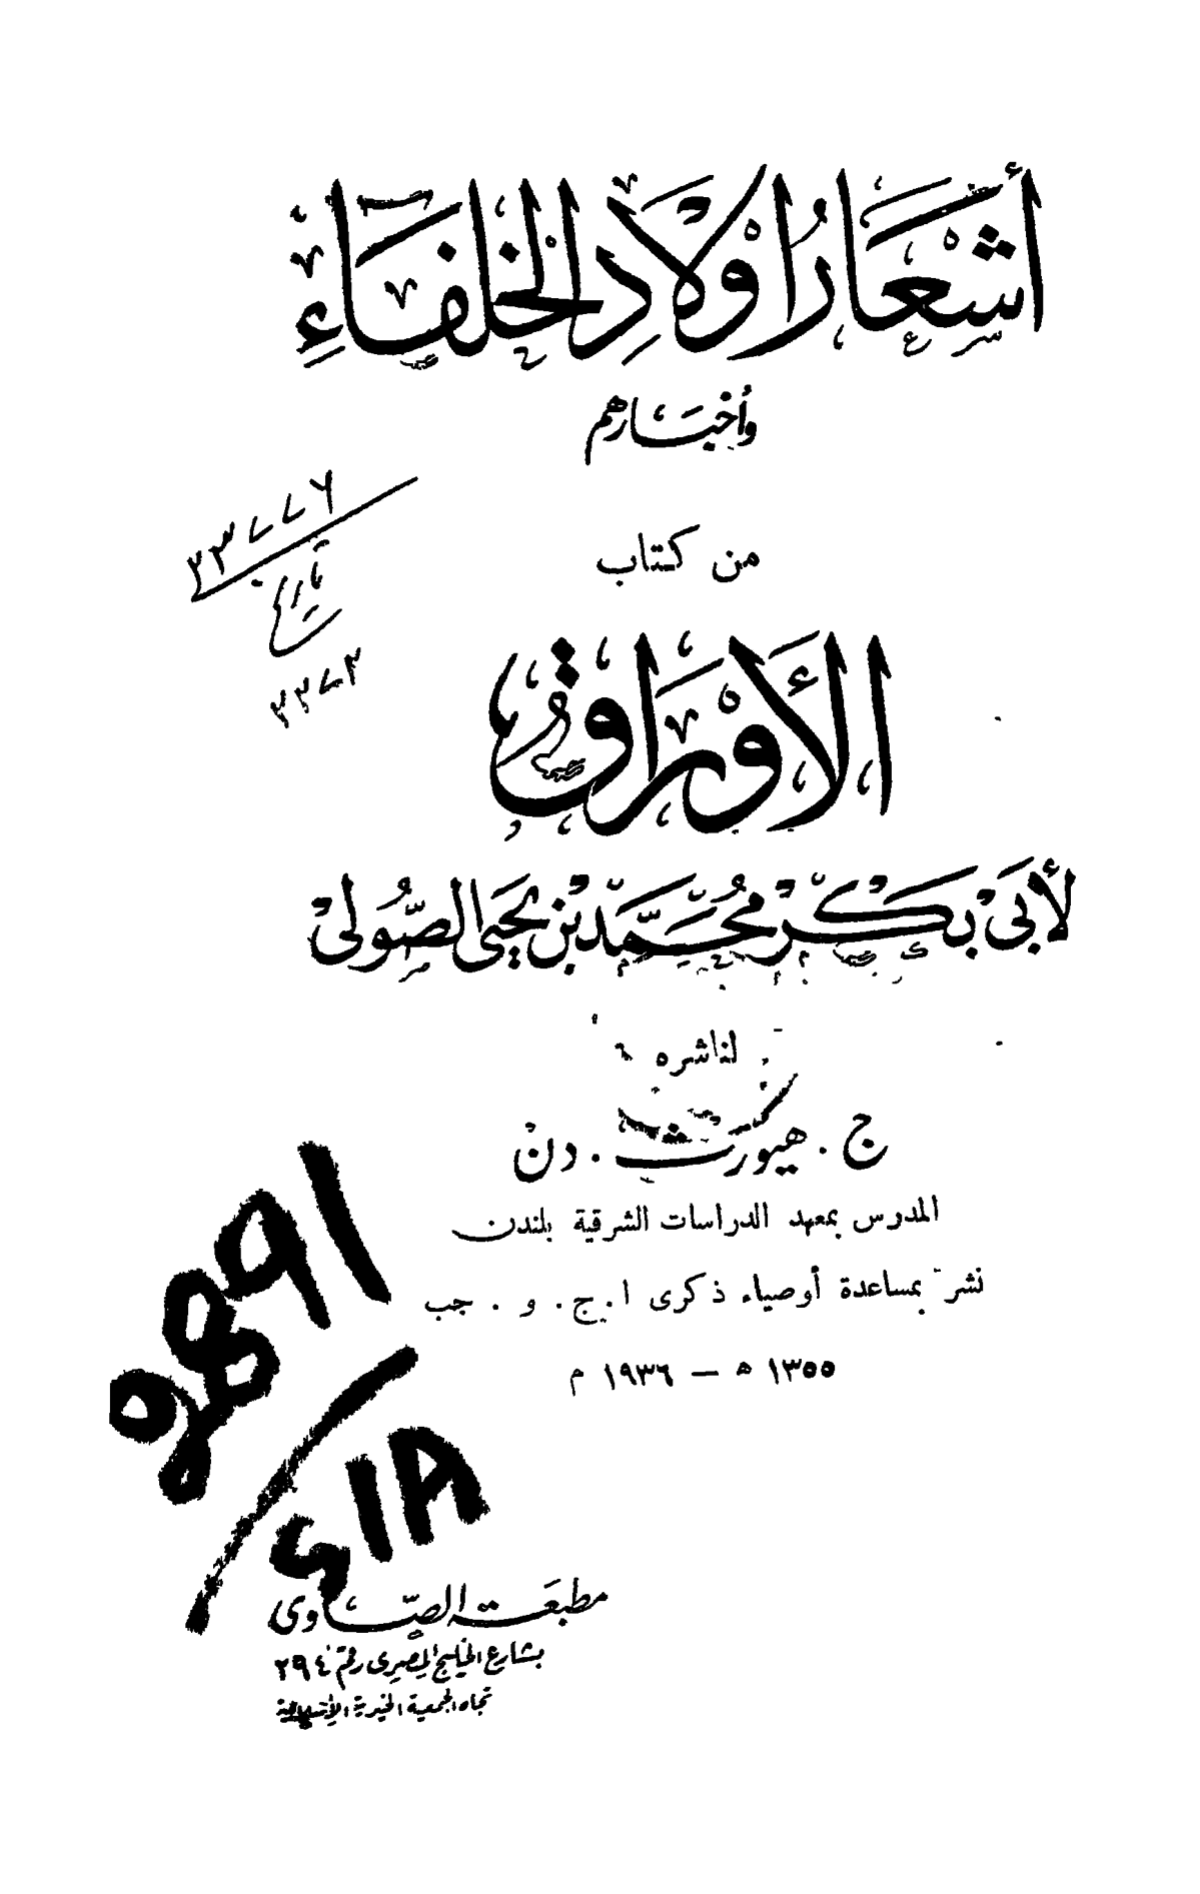 أشعار أولاد الخلفاء
وأخبارهم
من كتاب
٣٣٧٧٦
تاريخ
٣٣٧٣
الأوراق
لأبي بكر محمد بن يحيى الصولي
لناشره
ج . هيورث . دن
المدرس بمعهد الدراسات الشرقية بلندن
نشر بمساعدة أوصياء ذكرى ا . ج . و . جب
١٣٥٥ ه — ١٩٣٦ م
مطبعة الصاوى
بشارع الخليج المصرى رقم ٢٩٤
تجاه الجمعية الخيرية الإسلامية